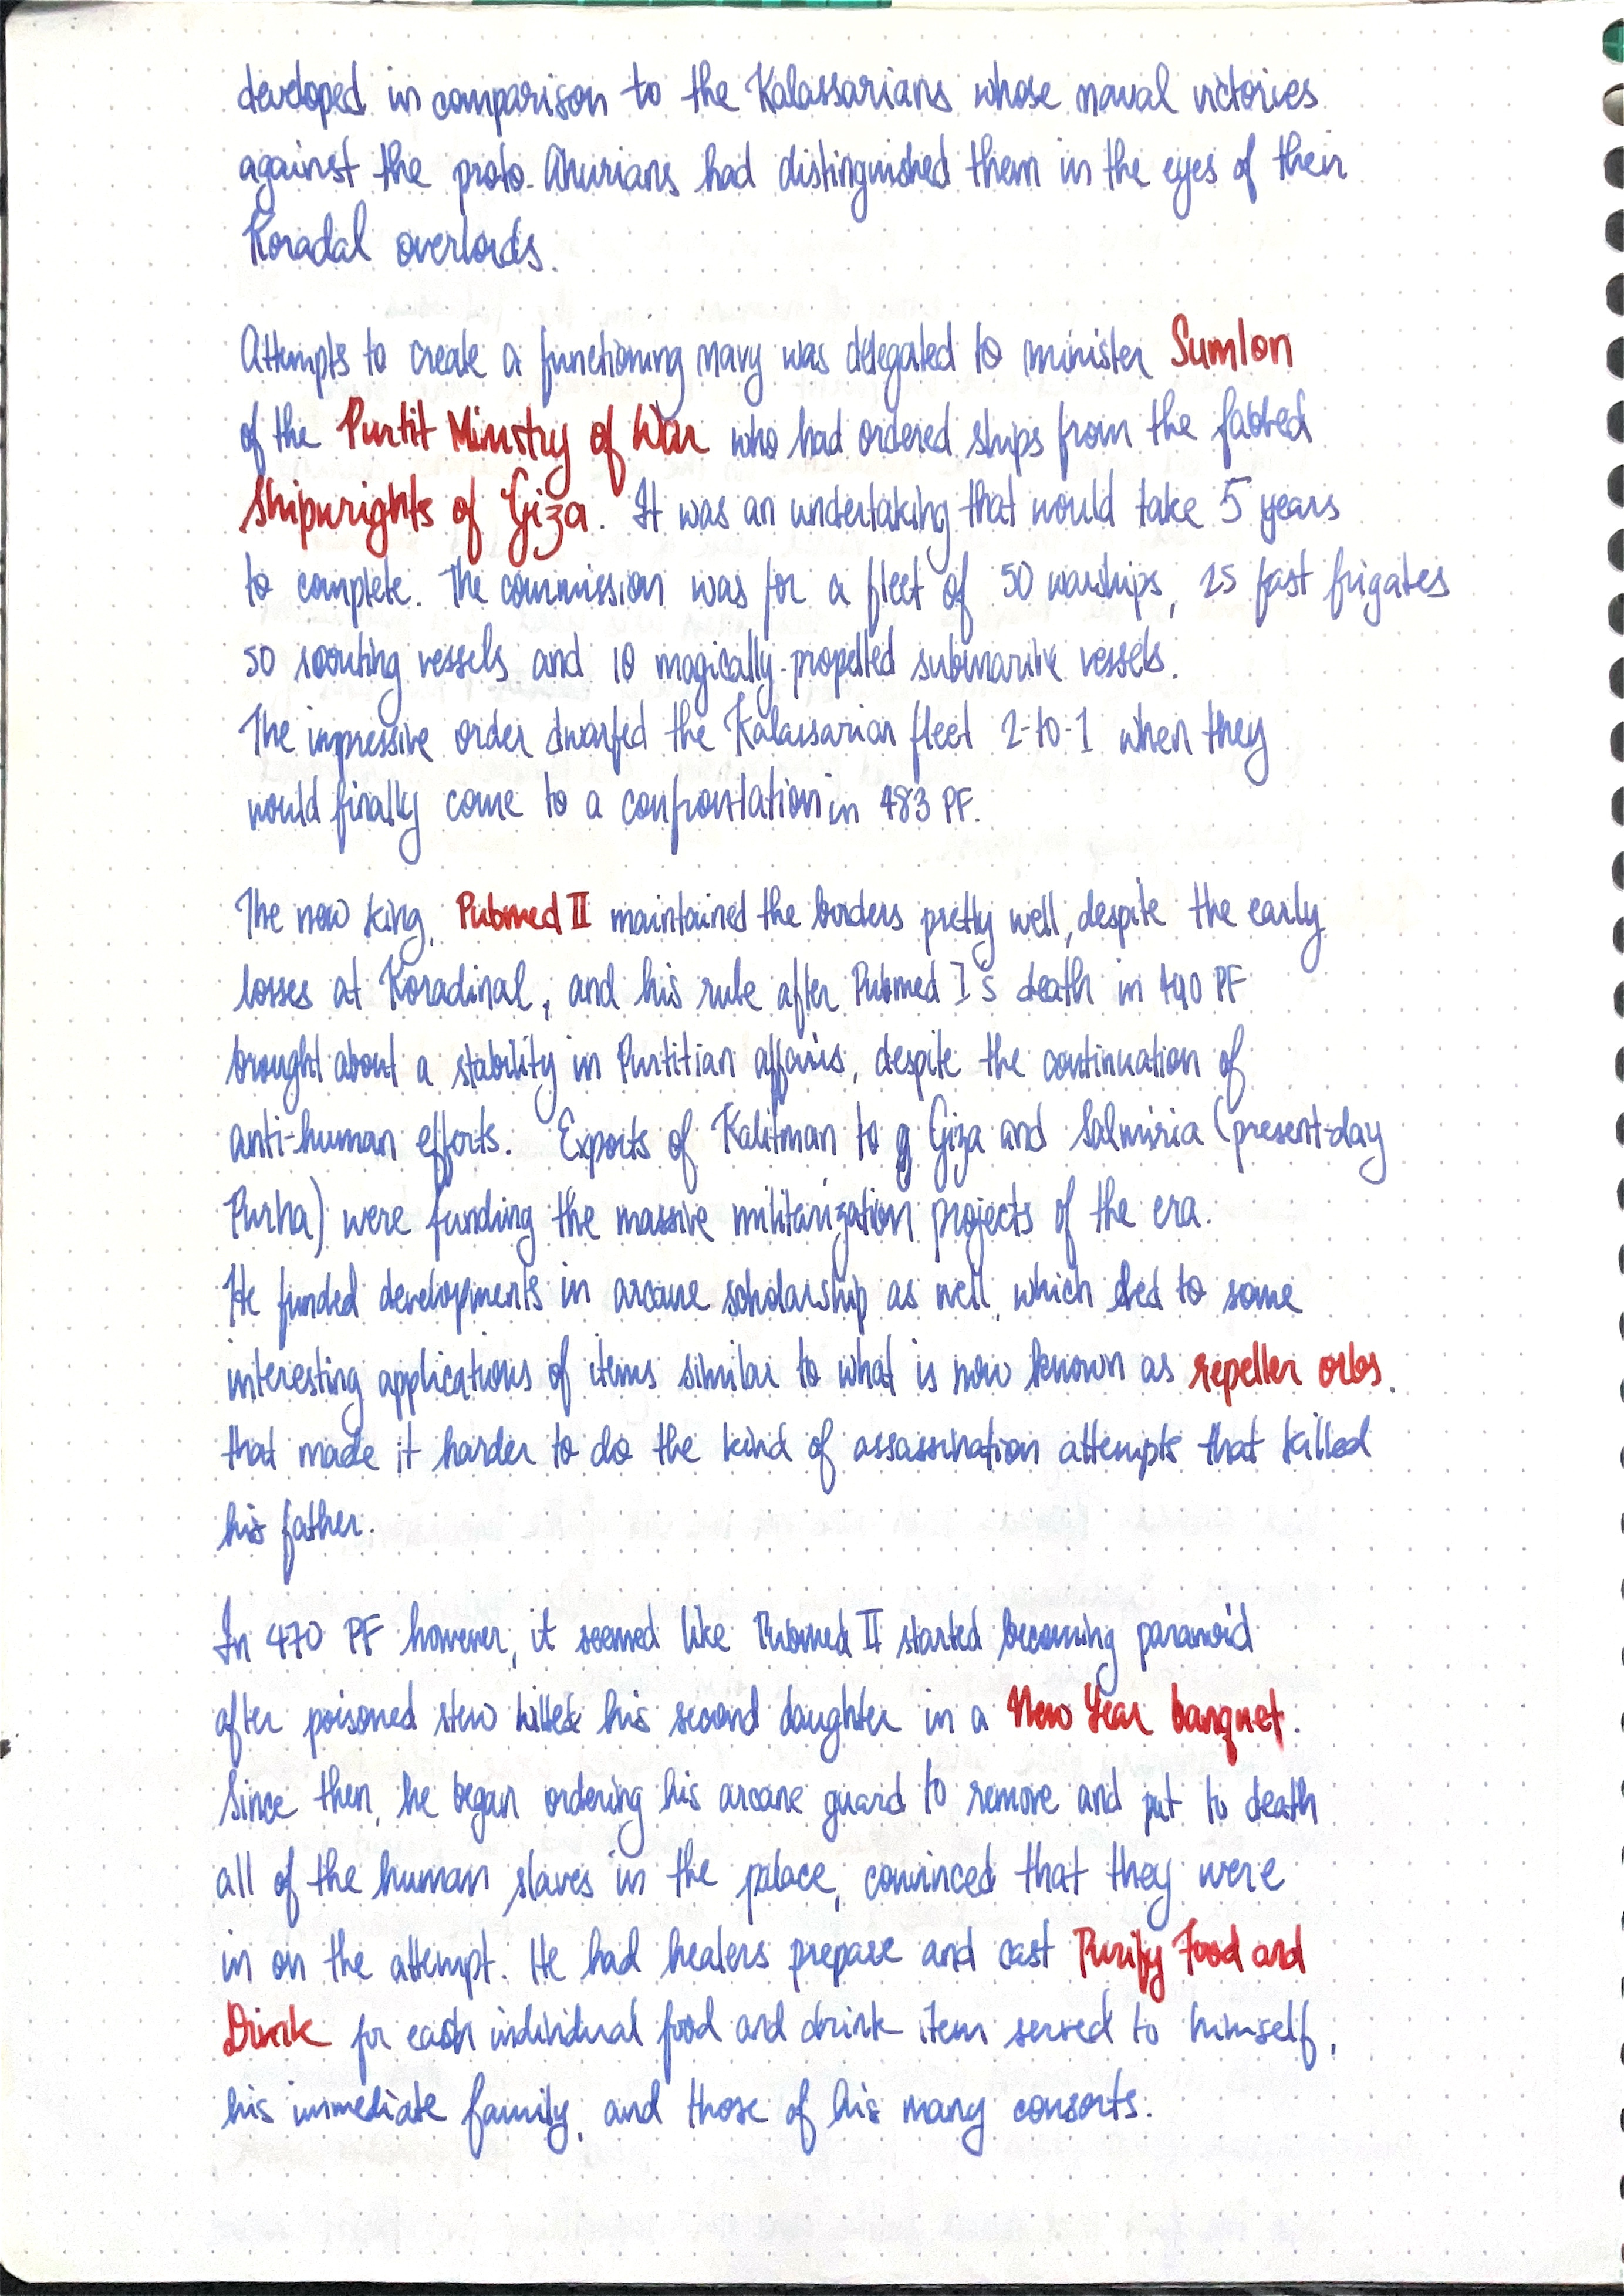 developed in comparison to the Kalassarians whose naval victories
against the proto-Ahurians had distinguished them in the eyes of their
Koradal overlords.
Attempts to create a functioning navy was delegated to minister Sumlon
of the Purtit Ministry of War who had ordered ships from the fabled
Shipwrights of Giza. It was an undertaking that would take 5 years
to complete. The commission was for a fleet of 50 warships, 25 fast frigates
50 scouting vessels and 10 magically-propelled submarine vessels.
The impressive order dwarfed the Kalassarian fleet 2-to-1 when they
would finally come to a confrontation in 483 PF.
The new king, Pubmed II maintained the borders pretty well, despite the early
losses at Koradinal, and his rule after Pubmed I's death in 490 PF
brought about a stability in Purtitian affairs, despite the continuation of
anti-human efforts. Exports of Kalitman to Giza and Salmiria (present-day
Purha) were funding the massive militarization projects of the era.
He funded developments in arcane scholarship as well, which led to some
interesting applications of items similar to what is now known as repeller orbs.
that made it harder to do the kind of assassination attempts that killed
his father.
In 470 PF however, it seemed like Pubmed II started becoming paranoid
after poisoned stew killed his second daughter in a New Year banquet.
Since then, he began ordering his arcane guard to remove and put to death
all of the human slaves in the palace, convinced that they were
in on the attempt. He had healers prepare and cast Purify Food and
Drink for each individual food and drink item served to himself,
his immediate family, and those of his many consorts.